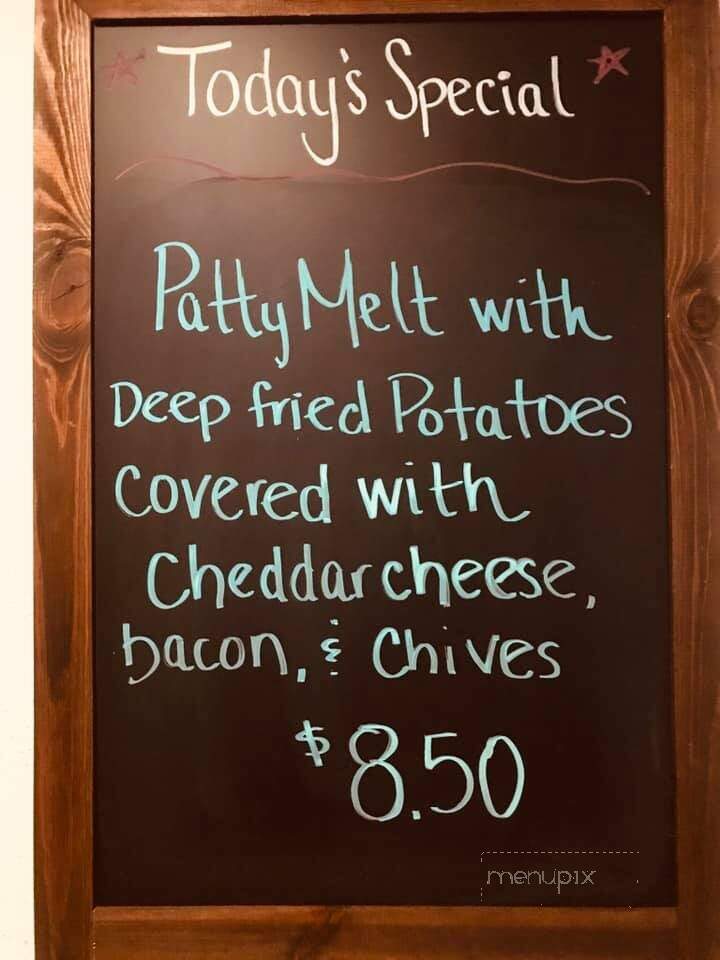 Today's Special
Patty Melt with
Deep fried Potatoes
Covered with
Cheddar cheese,
bacon, & Chives
$8.50
menupix